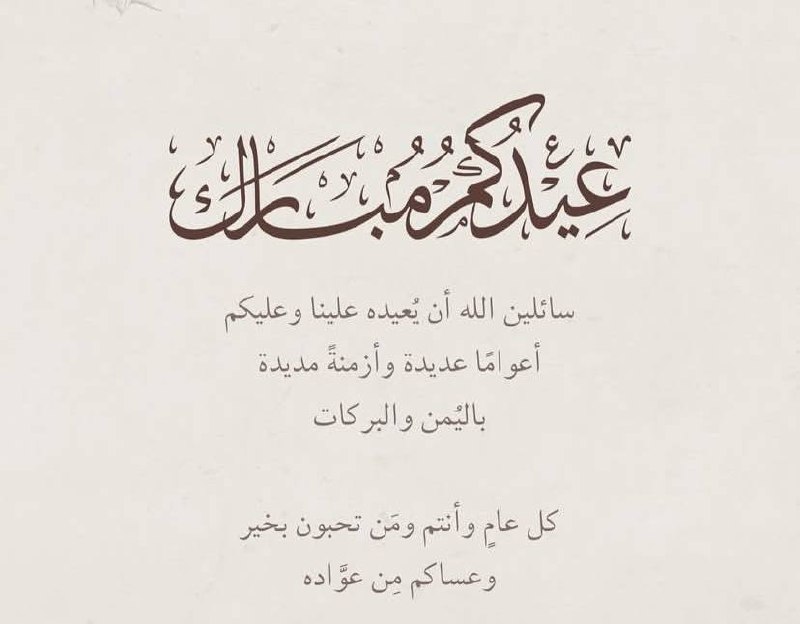 عِيْدُكُمْ مُبَارَك
سائلين الله أن يُعيده علينا وعليكم
أعوامًا عديدة وأزمنةً مديدة
باليُمن والبركات
كل عامٍ وأنتم ومَن تحبون بخير
وعساكم مِن عوَّاده